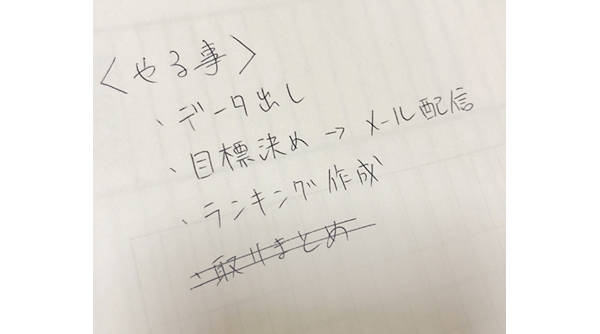 〈やる事〉
・データ出し
・目標決め→メール配信
・ランキング作成
・取りまとめ